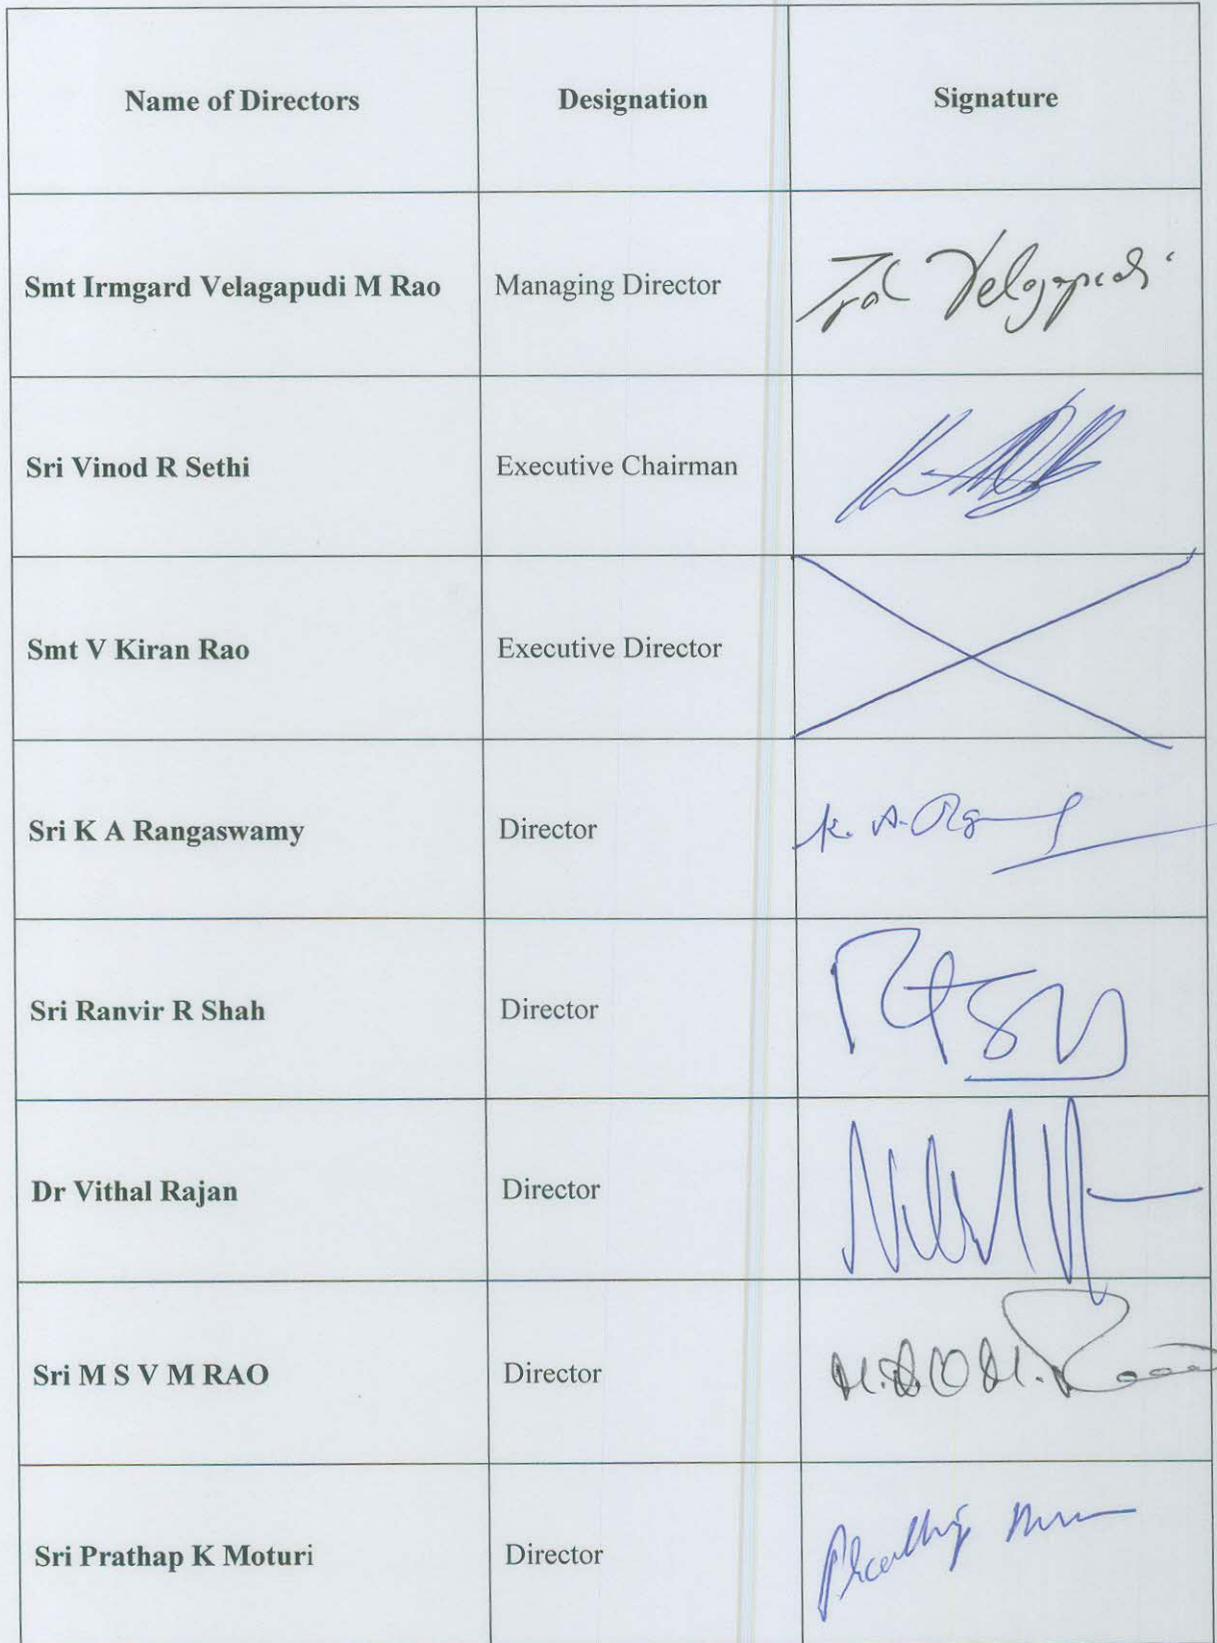 Name of Directors Designation Signature
Smt Irmgard Velagapudi M Rao Managing Director Velagapudi
Sri Vinod R Sethi Executive Chairman
Smt V Kiran Rao Executive Director
Sri K A Rangaswamy Director K. A.
Sri Ranvir R Shah Director
Dr Vithal Rajan Director
Sri M S V M RAO Director M.S.V.M.
Sri Prathap K Moturi Director